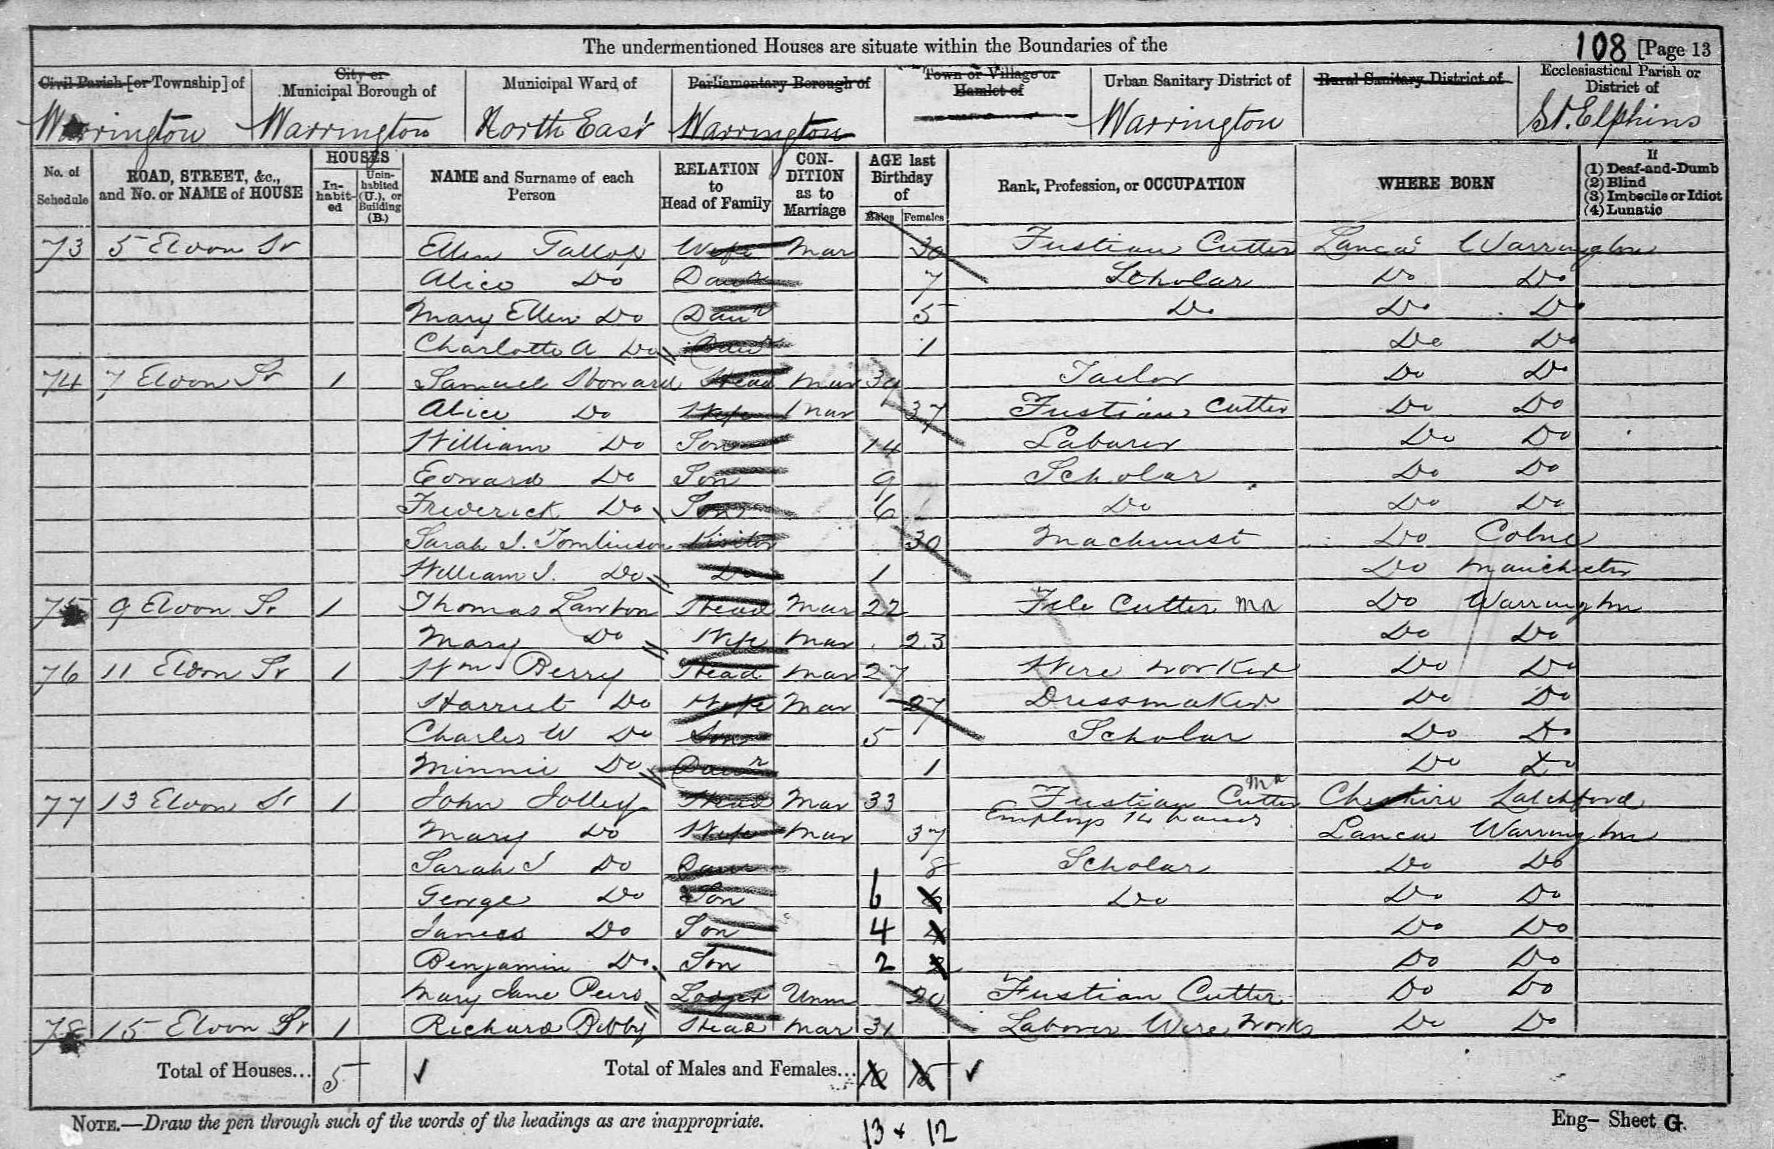 The undermentioned Houses are situate within the Boundaries of the 108 [Page 13
Civil Parish [or Township] of City or Municipal Borough of Municipal Ward of Parliamentary Borough of Town or Village or Hamlet of Urban Sanitary District of Rural Sanitary District of Ecclesiastical Parish or District of
Warrington Warrington North East Warrington Warrington St. Elphins
No. of Schedule ROAD, STREET, &c., and No. or NAME of HOUSE HOUSES Inhabited Uninhabited (U.), or Building (B.) NAME and Surname of each Person RELATION to Head of Family CONDITION as to Marriage AGE last Birthday of Males Females Rank, Profession, or OCCUPATION WHERE BORN If (1) Deaf-and-Dumb (2) Blind (3) Imbecile or Idiot (4) Lunatic
73 5 Eldon St Ellen Gallop Wife Mar 30 Fustian Cutter Lanca Warrington
Alice Do Daur 7 Scholar Do Do
Mary Ellen Do Daur 5 Do Do Do
Charlotte A Do Daur 1 Do Do
74 7 Eldon St 1 Samuel Howard Head Mar 34 Tailor Do Do
Alice Do Wife Mar 37 Fustian Cutter Do Do
William Do Son 14 Labourer Do Do
Edward Do Son 9 Scholar Do Do
Frederick Do Son 6 Do Do Do
Sarah J. Tomlinson Visitor 30 Machinist Do Colne
William J. Do Do 1 Do Manchester
75 9 Eldon St 1 Thomas Lawton Head Mar 22 File Cutter Ma Do Warrington
Mary Do Wife Mar 23 Do Do
76 11 Eldon St 1 Wm Berry Head Mar 27 Wire Worker Do Do
Harriet Do Wife Mar 27 Dressmaker Do Do
Charles W Do Son 5 Scholar Do Do
Minnie Do Daur 1 Do Do
77 13 Eldon St 1 John Jolley Head Mar 33 Fustian Cutter Ma Cheshire Latchford
Employs 14 hands
Mary Do Wife Mar 37 Lanca Warrington
Sarah J Do Daur 8 Scholar Do Do
George Do Son 6 6 Do Do Do
James Do Son 4 4 Do Do
Benjamin Do Son 2 2 Do Do
Mary Jane Peers Lodger Unm 20 Fustian Cutter Do Do
78 15 Eldon St 1 Richard Bibby Head Mar 31 Laborer Wire Works Do Do
Total of Houses... 5 Total of Males and Females... 10 15
NOTE.—Draw the pen through such of the words of the headings as are inappropriate. 13 12 Eng– Sheet G.